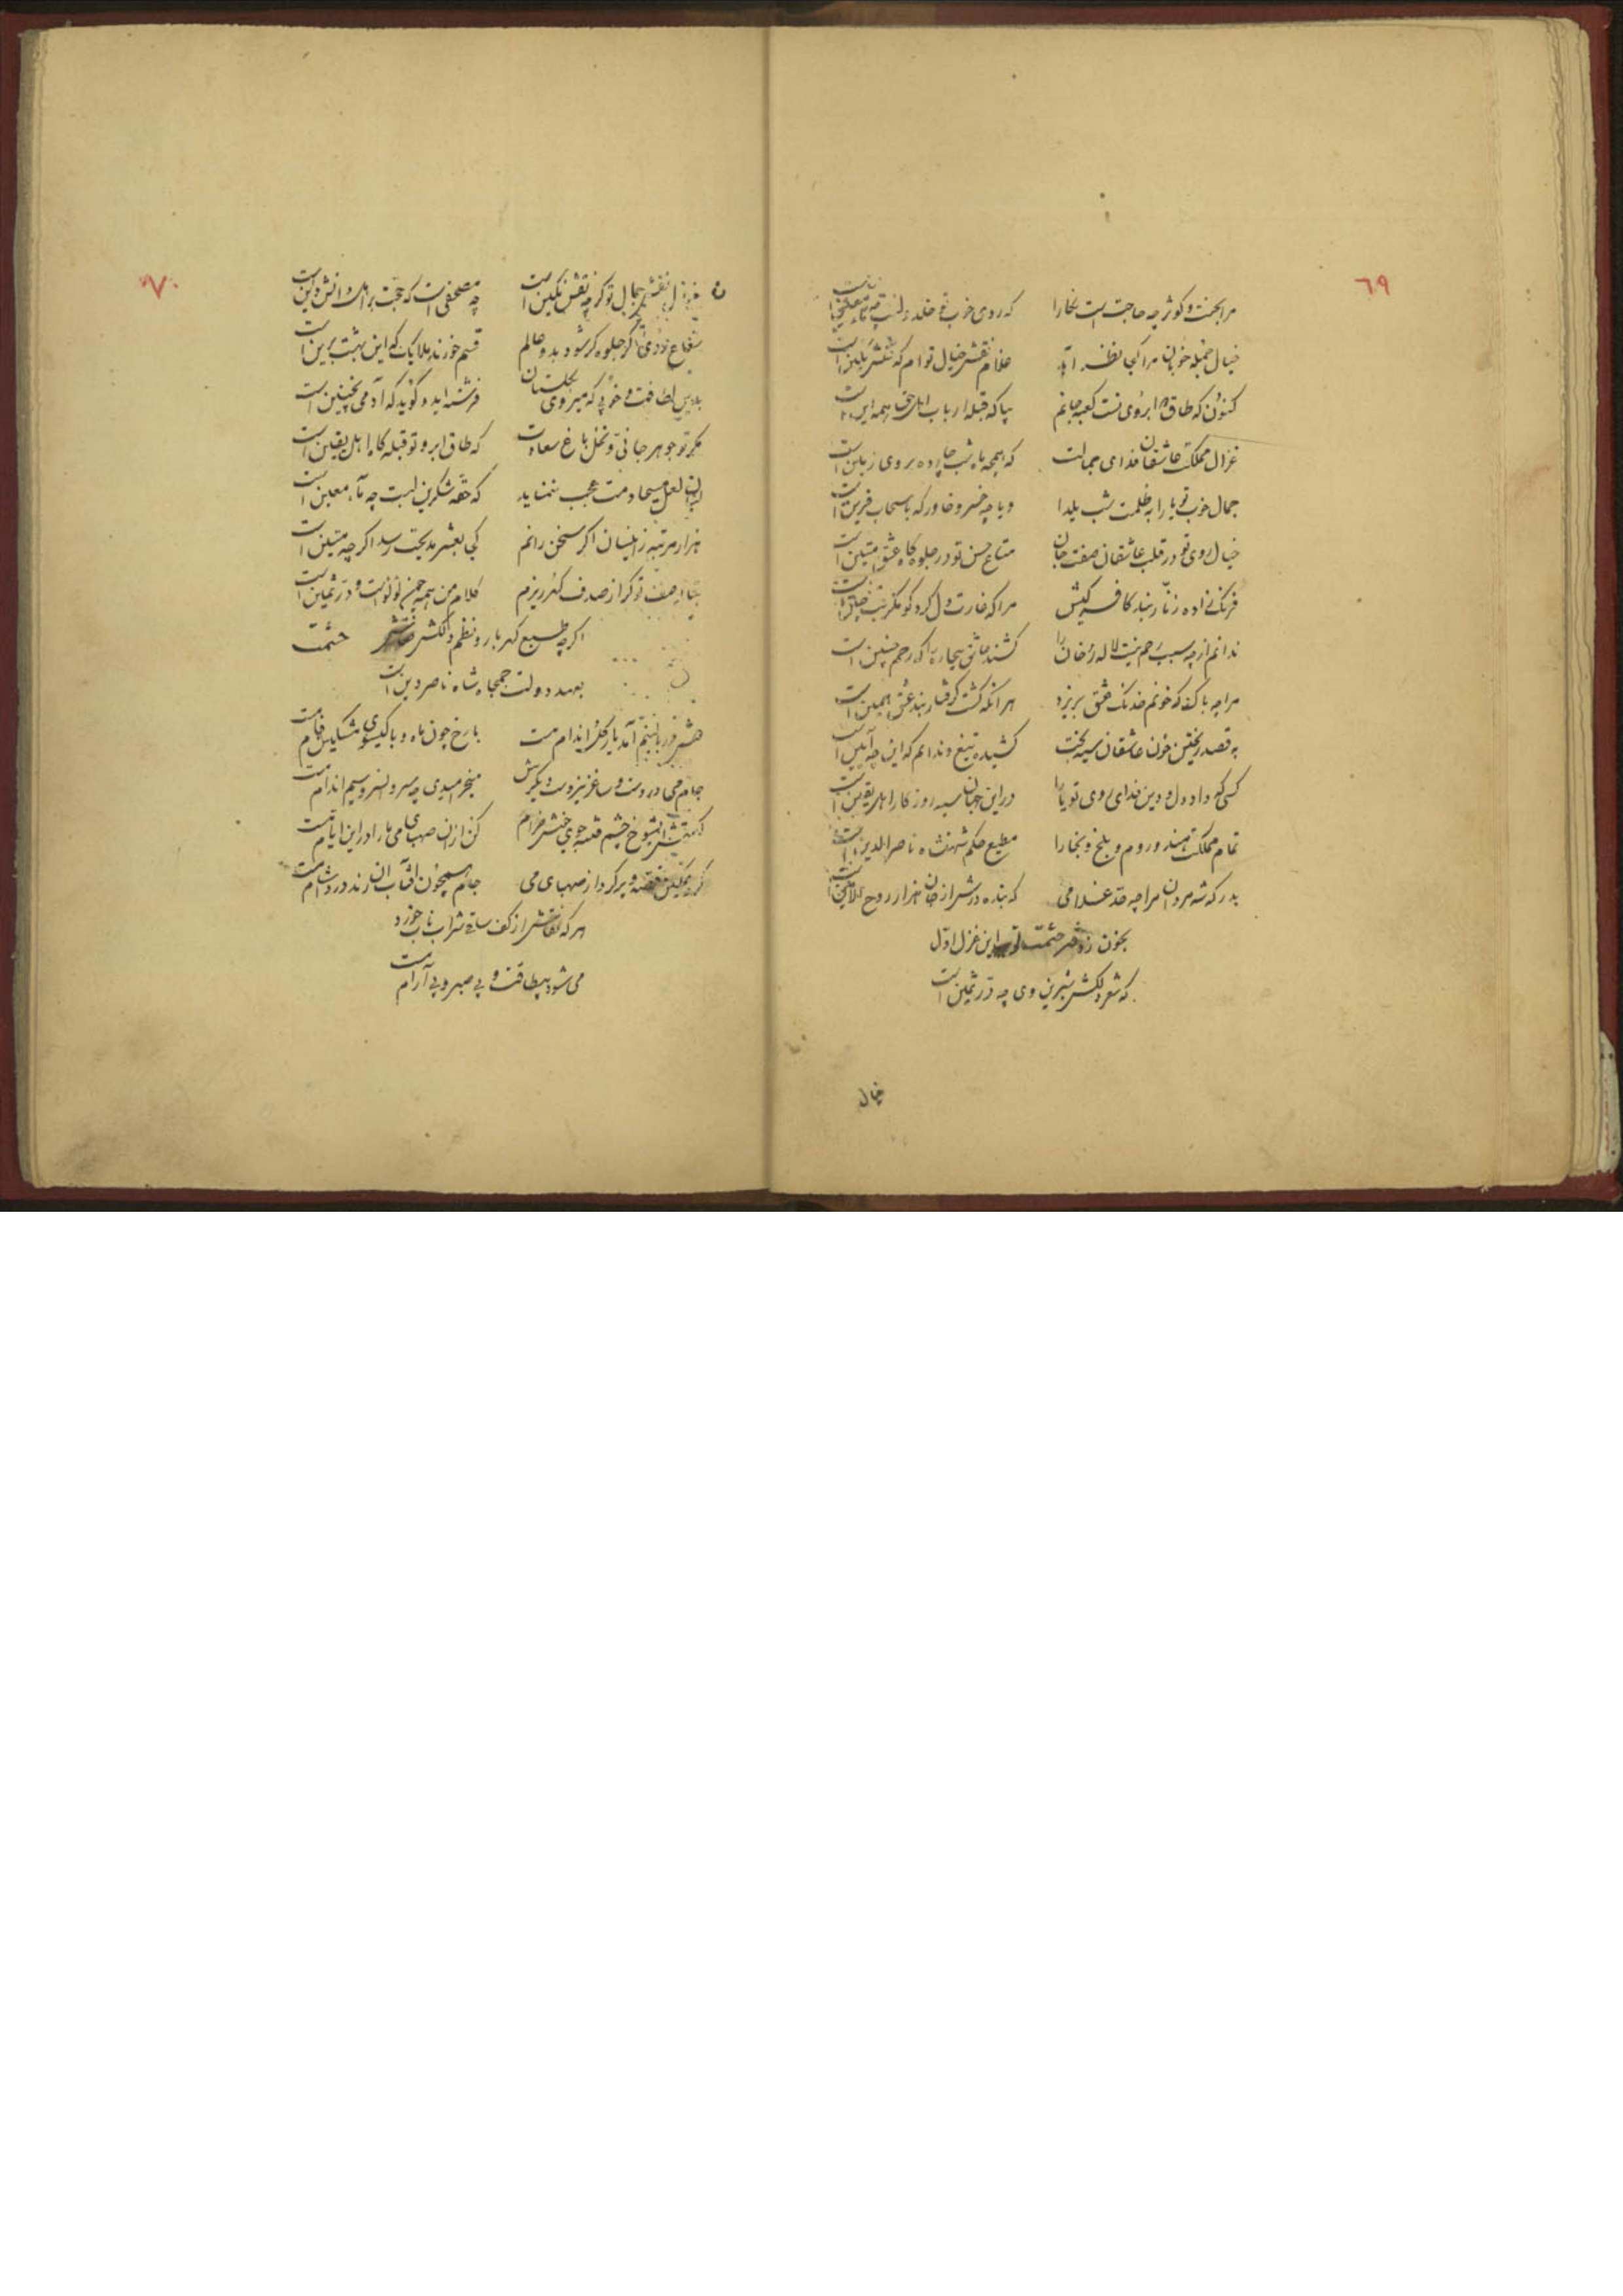 ٦٩
مرا بجنت و کوثر چه حاجت است نگارا که روی خوب تو خلد و لبت چه ماء معین است
خیال جمله خوبان مرا کجا بنظر آید غلام نقش خیال توام که نقش نگین است
کنون که طاق دو ابروی تست کعبه جانم بیا که قبله ارباب اهل حق همه این است
غزال مملکت عاشقان فدای جمالت که همچه ماه شب چارده بروی زمین است
جمال خوب تو یارا به ظلمت شب یلدا و یا چه خسرو خاور که با سحاب قرین است
خیال روی تو در قلب عاشقان صفت جان متاع حسن تو در جلوه گاه عشق متین است
فرنگ زاده زنار بند کافر کیش مرا که غارت دل کرد گو مگر بت چین است
ندانم از چه سبب رحم نیست لاله رخان را کشند عاشق بیچاره را که رحم چنین است
مرا چه باک که خونم خدنگ عشق بریزد هر آنکه گشت گرفتار بند عشق همین است
به قصد ریختن خون عاشقان سیه بخت کشیده تیغ و ندانم که این چه آیین است
کسی که داد دل و دین فدای روی تو یارا در این جهان سیه روزگار اهل یقین است
تمام مملکت هند و روم و بلخ و بخارا مطیع حکم شهنشاه ناصرالدین است
بدرگه شه مردان مرا چه حد غلامی که بنده درش از جان هزار روح الامین است
بخون ز دفتر حشمت تو این غزل اول
که شعر دلکش شیرین وی چه در ثمین است
خیال
٧٠
خیال نقش جمال تو گر چه نقش نگین است چه مصحفی است که حجت بر اهل دانش و دین است
شعاع نور رخ گر جلوه گر شود بدو عالم قسم خورند ملایک که این بهشت برین است
بدین لطافت و خوبی که میروی بگلستان فرشته اید و گوید که آدمی بچنین است
مگر تو جوهر جانی و نخل باغ سعادت که طاق ابرو تو قبله گاه اهل یقین است
لبان لعل مسیحا دمت عجب ننماید که حقه شکرین لبت چه ماء معین است
هزار مرتبه زینسان اگر سخن رانم کجا بعشر مدیحت رسد اگر چه متین است
بجای وصف تو گر از صدف گهر ریزم کلام من همه چون لؤلؤ است و در ثمین است
اگر چه طبع گهر بار و نظم دلکش حشمت
بعهد دولت جمجاه شاه ناصر دین است
بالینم آمد یار گل اندام مست با رخ چون ماه و با گیسوی مشکین فام مست
جام می در دست و ساغر نیز دست دیگرش میخرامیدی چه سرو لنسر و سیم اندام مست
گفتمش ایشوخ چشم فتنه جوی خوش خرام کن از آن صهبای می ما را در این ایام مست
کرد تمکین و پر کرد از صهبای می جام همچون آفتاب آن رند درد آشام مست
هر که از کف ساقی شراب ناب خورد
می شود بیطاقت و بی صبر و بی آرام مست